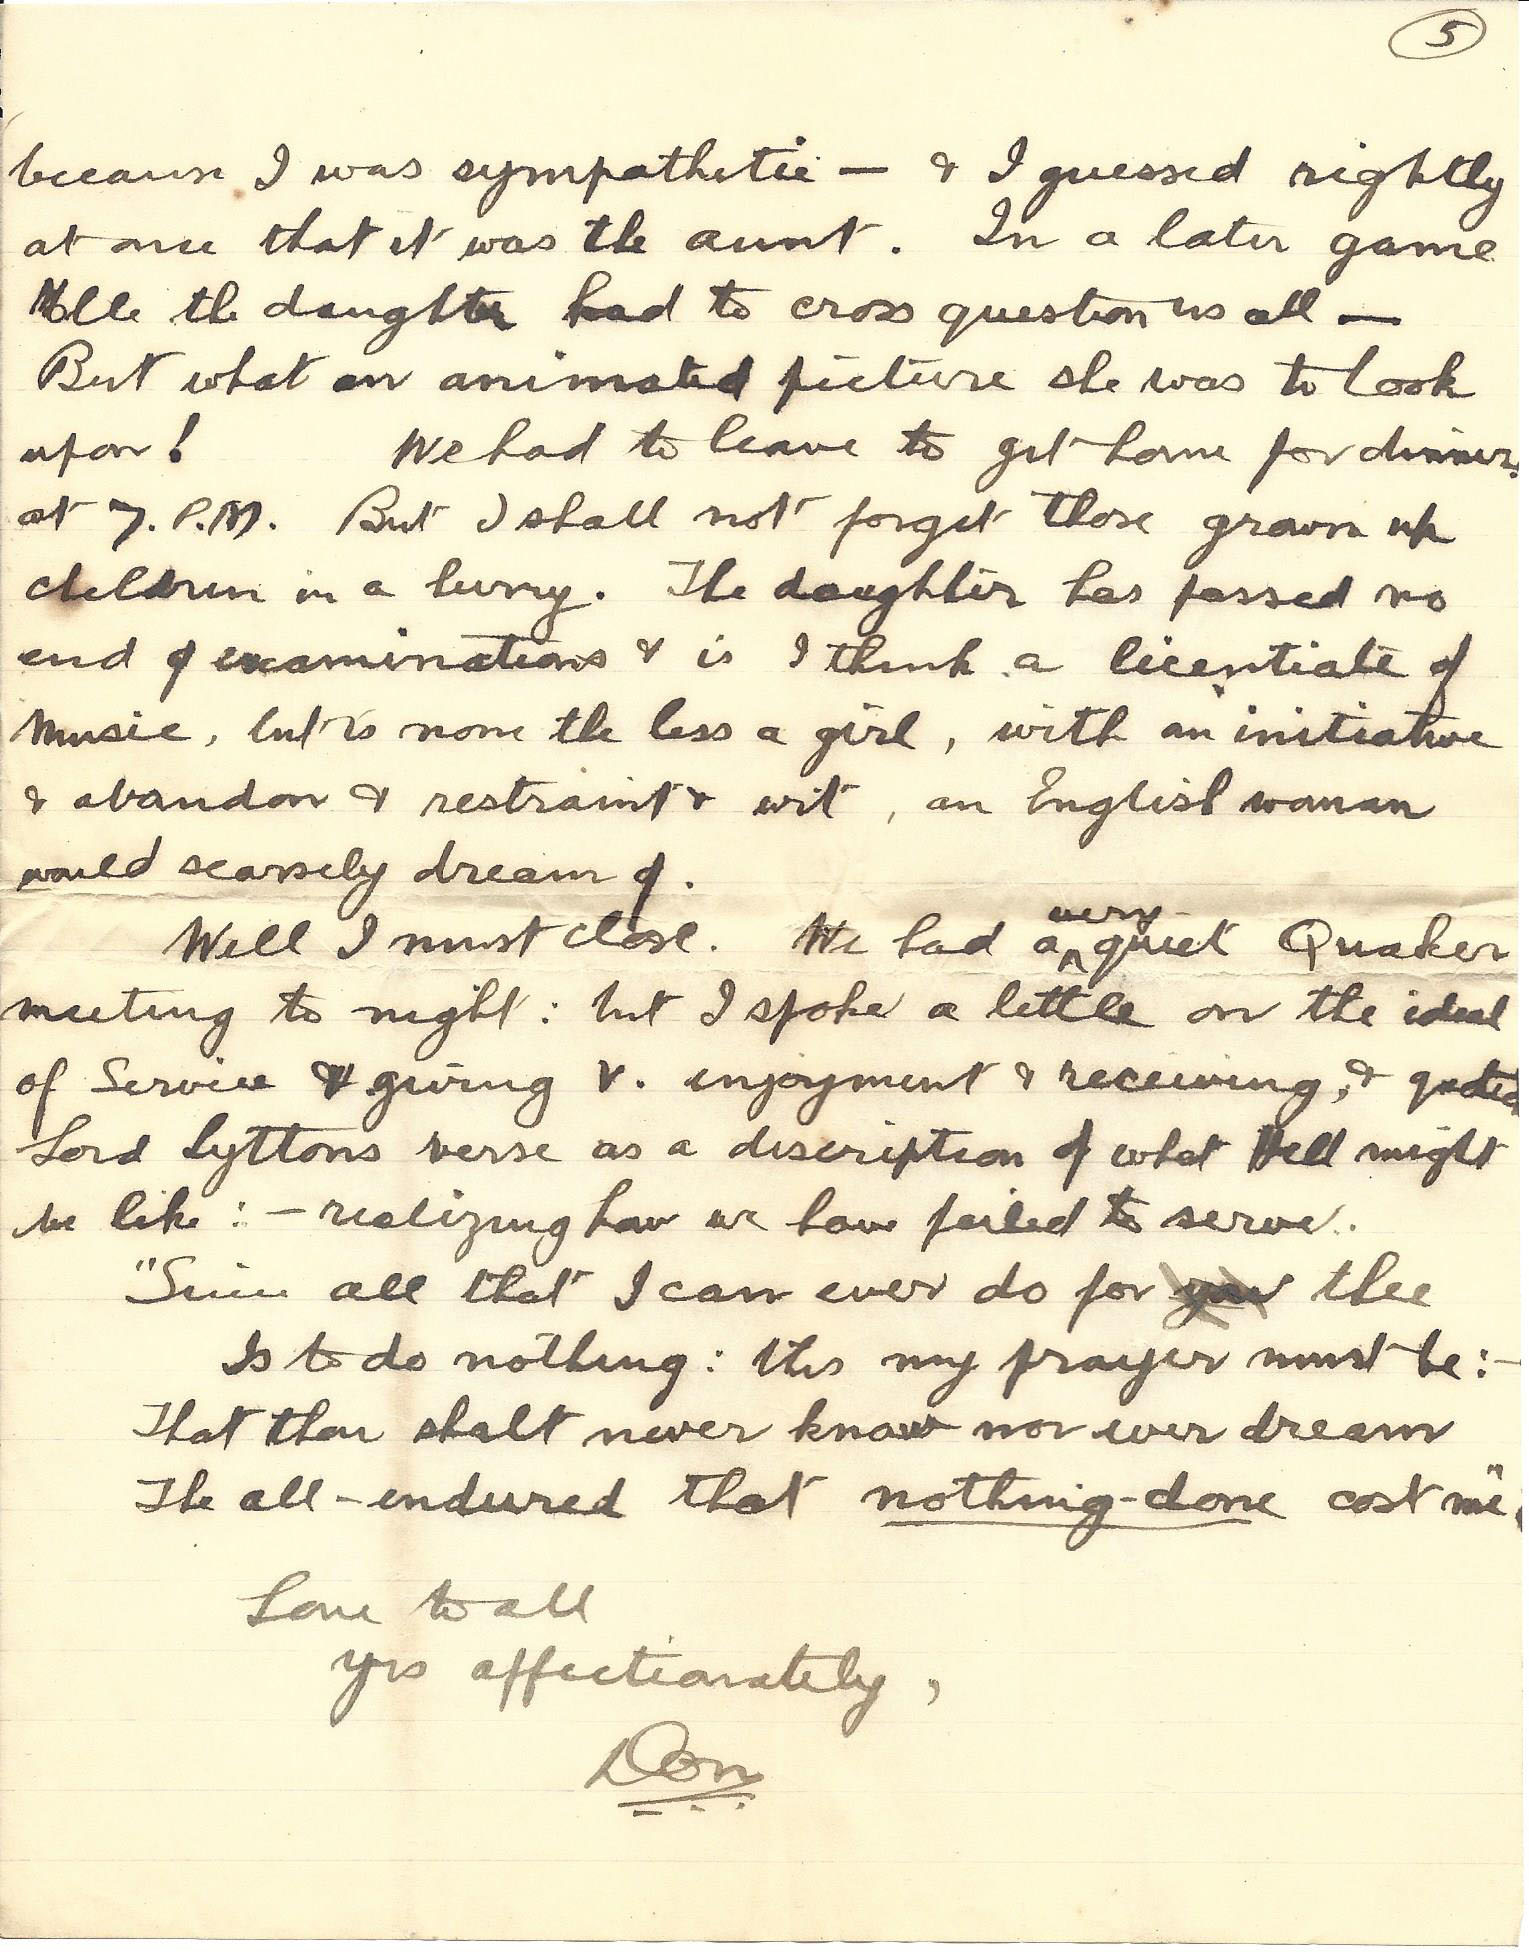 5
because I was sympathetic — & I guessed rightly
at once that it was the aunt. In a later game
Mlle the daughter had to cross question us all —
But what an animated picture she was to look
upon! We had to leave to get home for dinner
at 7. P.M. But I shall not forget those grown up
children in a hurry. The daughter has passed no
end of examinations & is I think a licentiate of
Music, but is none the less a girl, with an initiative
& abandon & restraint & wit, an English woman
would scarsely dream of.
Well I must close. We had a very quiet Quaker
meeting to night: but I spoke a little on the ideal
of Service & giving v. enjoyment & receiving, & quoted
Lord Lyttons verse as a description of what Hell might
be like: — realizing how we have failed to serve.
"Since all that I can ever do for you thee
Is to do nothing: this my prayer must be:—
That thou shalt never know nor ever dream
The all-endured that nothing-done cost me".
Love to all
yrs affectionately,
Don